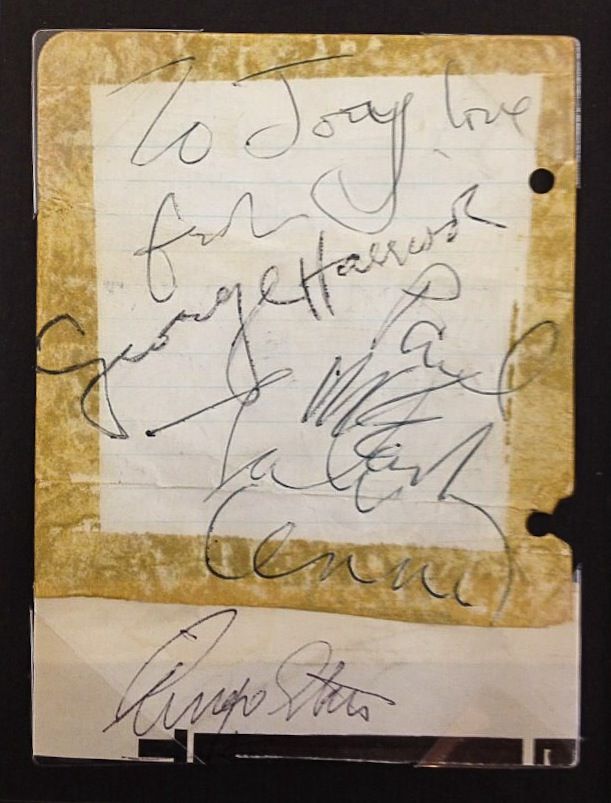 To Joay love
from
George Harrison
Paul
McCartney
John
Lennon
Ringo Starr